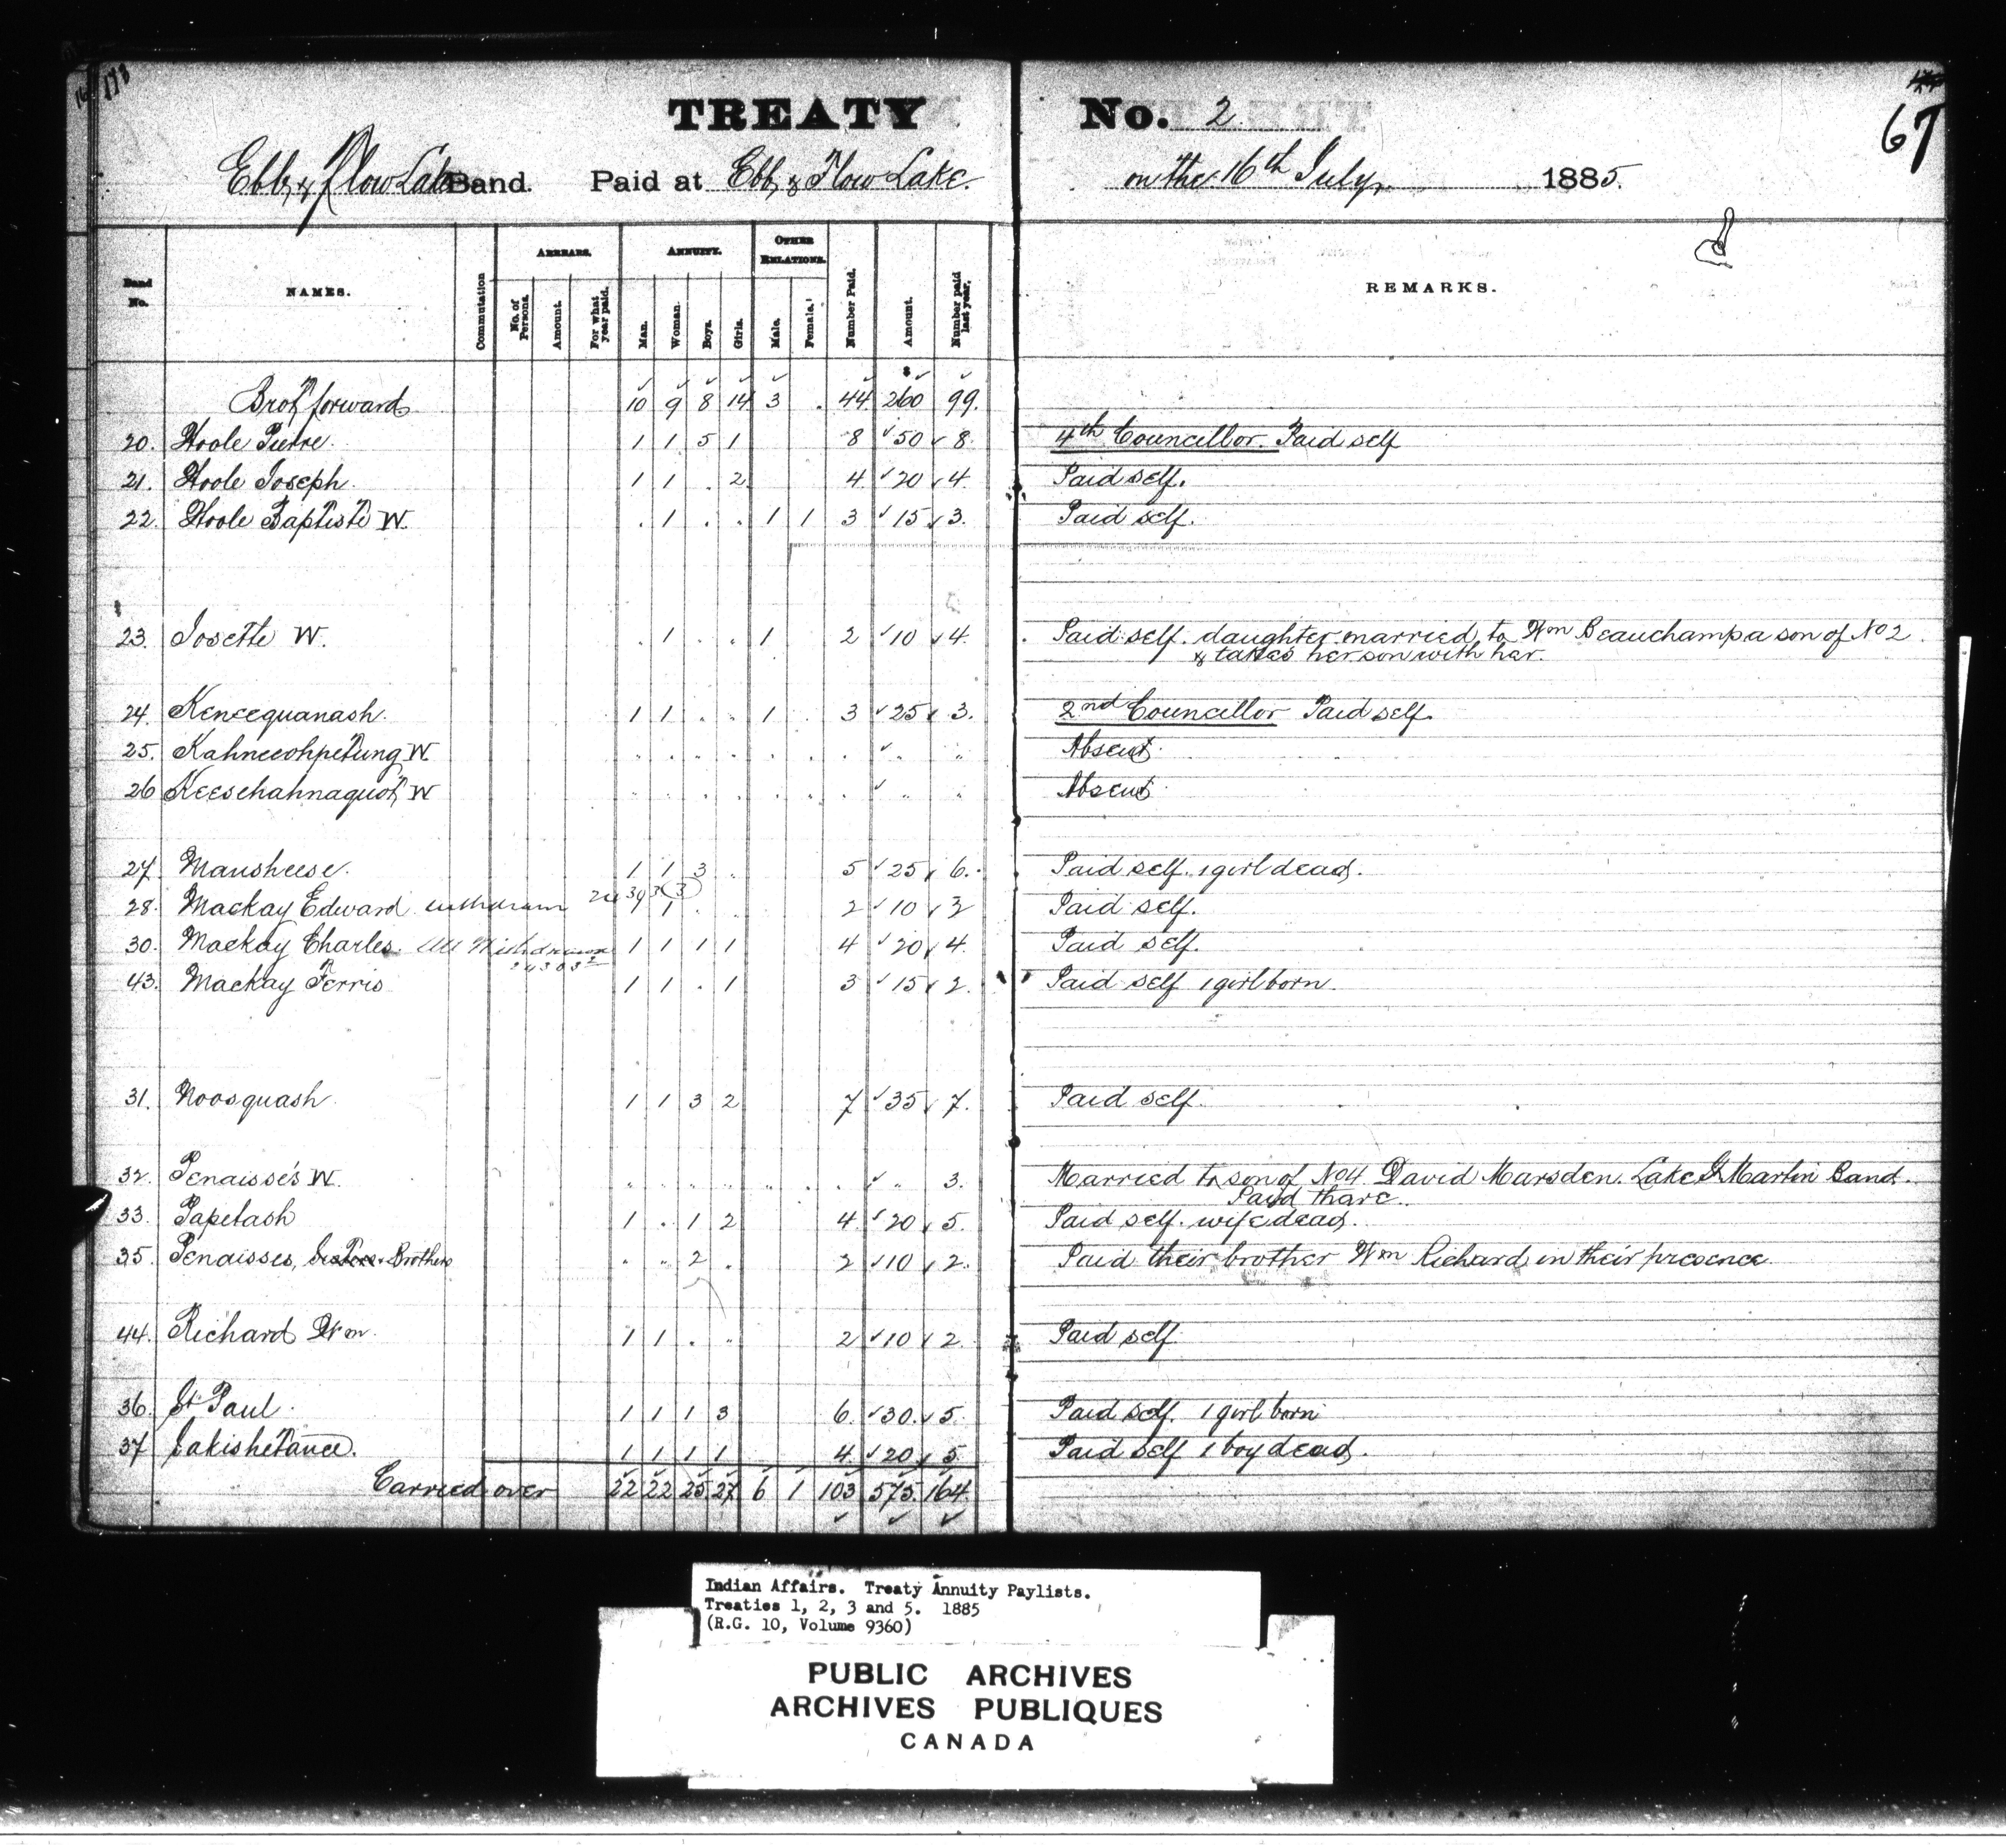 178
67
TREATY No. 2
Ebb & Flow Lake Band. Paid at Ebb & Flow Lake. on the 16th July, 1885.
Band No. NAMES. Commutation ARREARS. No. of Persons. Amount. For what year paid. ANNUITY. Man. Woman. Boys. Girls. OTHER RELATIONS. Male. Female. Number Paid. Amount. Number paid last year. REMARKS.
Brot forward 10 9 8 14 3 . 44 $ 260 99.
20. Hoole Pierre. 1 1 5 1 8 50 8. 4th Councillor. Paid self
21. Hoole Joseph. 1 1 . 2 4 20 4. Paid self.
22. Hoole Baptiste W. . 1 . . 1 1 3 15 3. Paid self.
23. Josette W. . 1 . . 1 2 10 4. Paid self. daughter married to Wm Beauchamp a son of No 2.
& takes her son with her.
24. Keneequanash. 1 1 . . 1 . 3 25 3. 2nd Councillor Paid self.
25. Kahneeohpetung W. Absent.
26 Keeschahnaquot W Absent.
27. Mausheese. 1 1 3 . 5 25 6. Paid self. 1 girl dead.
28. Mackay Edward withdrawn 1 1 . . 2 10 2 Paid self.
30. Mackay Charles. All Withdrawn 1 1 1 1 4 20 4. Paid self.
43. Mackay Ferris 1 1 . 1 3 15 2. Paid self 1 girl born.
31. Noosquash 1 1 3 2 7 35 7. Paid self.
32. Penaisse's W. 3. Married to son of No 4 David Marsden. Lake St Martin Band.
Paid there.
33. Papetash 1 . 1 2 4. 20 5. Paid self. wife dead.
35. Penaisses, Brothers . . 2 . 2 10 2. Paid their brother Wm Richard in their presence.
44. Richard Wm. 1 1 . . 2 10 2. Paid self
36. St Paul. 1 1 1 3 6. 30. 5. Paid self. 1 girl born
37 Sakishetance. 1 1 1 1 4 20 5. Paid self 1 boy dead.
Carried over 22 22 25 27 6 1 103 575. 164.
Indian Affairs. Treaty Annuity Paylists.
Treaties 1, 2, 3 and 5. 1885
(R.G. 10, Volume 9360)
PUBLIC ARCHIVES
ARCHIVES PUBLIQUES
CANADA